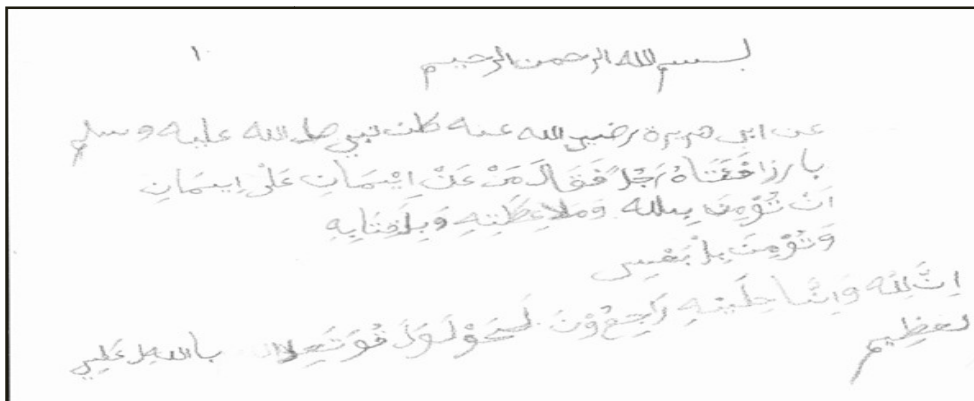 بسم الله الرحمن الرحيم ١
عن ابى هريرة رضي الله عنه كان نبي صلى الله عليه وسلم
بارزا فَقَتَاهُ رَجُلٌ فَقَالَ مَنْ عَنْ اِيْسَمَانِ عَلْ اِيسَمَانِ
اَنْ تُؤْمِنَ بِلله وَمَلاعِطَتِهِ وَبِلِقتَابِهِ
وَتُؤْمِنَ بِلْبَعْسِ
اِنَّ لِلّٰه وَاِنَّا حِلَيْهِ رَاجِعُوْنَ لَحَوْلَوَلَ قُوَتَعِلا بالله عَلِي
لعظِيم